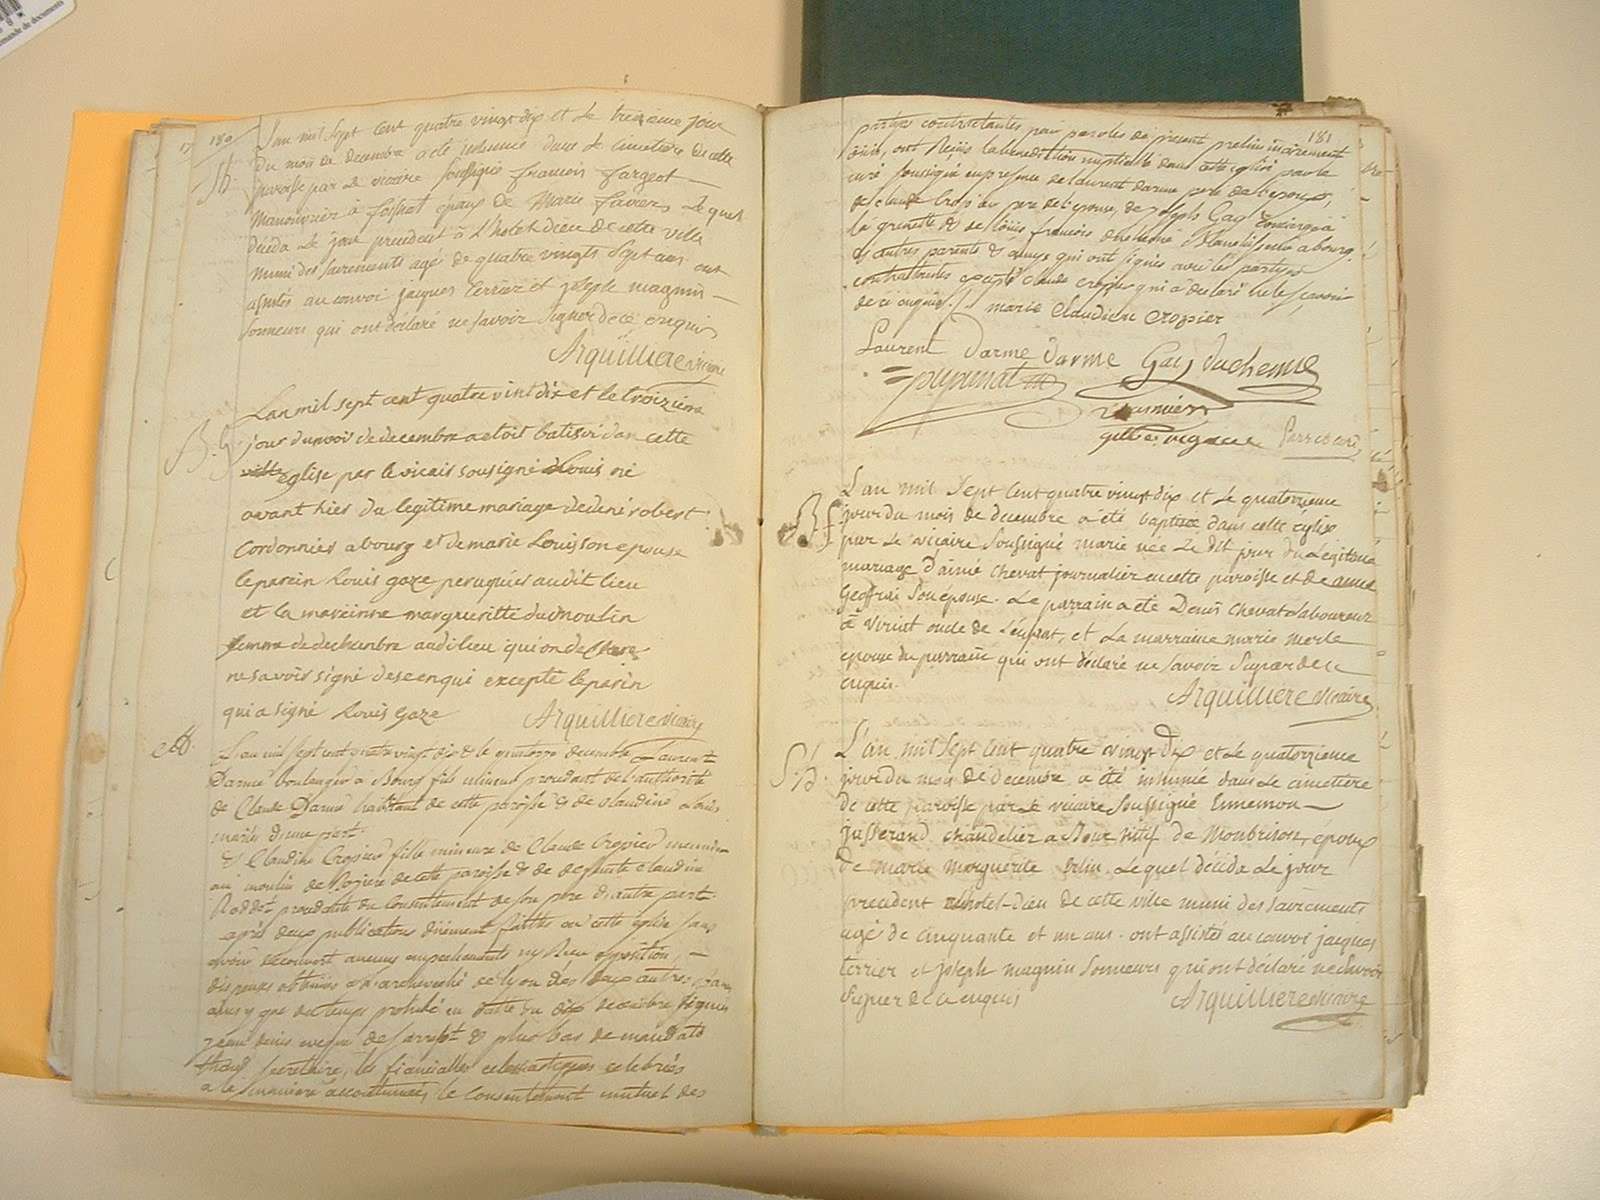 180
S.h.
L'an mil sept cent quatre vingt dix et le treizieme jour
du mois de decembre a été inhumé dans le cimetiere de cette
paroisse par le vicaire soussigné francois fargeot
manouvrier à foissiat epoux de Marie favier Lequel
déceda Le jour precedent à L'hotel dieu de cette ville
muni des sacrements agé de quatre vingts sept ans ont
assistés au convoi jacques terrier et joseph magnin
sonneurs qui ont déclaré ne savoir signer de ce enquis
Arquilliere vicaire
B. G.
Lan mil sept cent quatre vint dix et le troizieme
jour du mois de decembre a etoit batisé dan cette
eglise par le vicais sousigné Louis né
avant hier du legitime mariage de dené robert
Cordonnier a bourg et de marie Louisson epouse
le parein Louis gaze peruquier audit lieu
et la mareinne margueritte dumoulin
femme de dechanbre audi lieu qui on de
ne savoir signé de se enqui excepté le parin
qui a signé Louis Gaze
Arquilliere vicaire
L'an mil sept cent quatre vingt dix & le quatorze decembre Laurent
Darme boulanger a Bourg fils mineur procedant de l'authorité
de Claude Darme habitant de cette paroisse & de claudine Louis
mariés d'une part
& Claudine Cropier fille mineure de Claude Cropier meunier
au moulin de Roziere de cette paroisse & de defunte claudine
procedante du Consentement de son pere d'autre part
après deux publications duement faittes en cette église sans
avoir decouvert aucuns empechements ny Reçu opposition,
dispenses obtenues de l'archeveché de lyon des deux autres
ainsy que du temps prohibé en datte du dix decembre signées
jean denis evêque de sarept & plus bas de mandato
secretaire, les fiancailles celebrées
a la maniere accoutumée, le Consentement mutuel des
181
partyes contractantes par paroles de present prelimi­nairement
ouis, ont Reçus la benediction nuptiale dans cette eglise par le
curé soussigné en presence de laurent darme pere de l'epoux,
de claude Cropier pere de l'epouse, de joseph Gay Concierge à
la grenette & de Loüis francois duchesne a bourg
& autres parents & amys qui ont signés avec les partyes
contractantes excepté claude cropier qui a déclaré ne le scavoir
de ce enquis. marie Claudine Cropier
Laurent Darme Darme Gay Duchesne
B. f.
L'an mil sept cent quatre vingt dix et Le quatorzieme
jour du mois de decembre a été baptisée dans cette église
par Le vicaire soussigné marie née Le dit jour du Légitime
mariage d'aimé Chevat journalier en cette paroisse et de anne
Geoffrai son epouse. Le parrain a eté Denis Chevat Laboureur
a Viriat oncle de L'enfant, et La marraine marie merle
epouse du parrain qui ont déclaré ne savoir signer de ce
enquis.
Arquilliere vicaire
S. h.
L'an mil sept cent quatre vingt dix et Le quatorzieme
jour du mois de decembre a été inhumé dans Le cimetiere
de cette paroisse par Le vicaire soussigné Ennemon
jusserand chandelier a Bourg natif de Monbrison, epoux
de marie Marguerite Lequel déceda Le jour
precedent a L'hotel-dieu de cette ville muni des sacrements
agé de cinquante et un ans. ont assistés au convoi jacques
terrier et joseph magnin sonneurs qui ont déclaré ne savoir
signer de ce enquis
Arquilliere vicaire